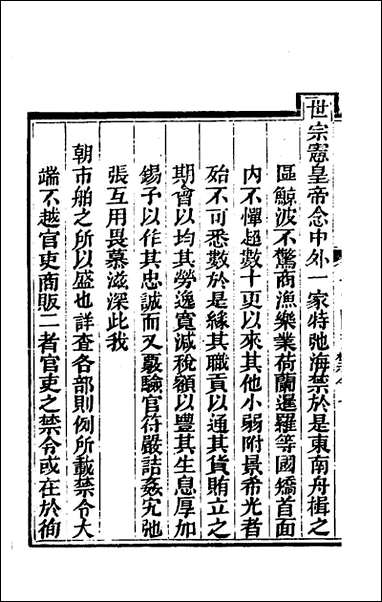 世宗憲皇帝念中外一家特弛海禁於是東南舟楫之
區鯨波不驚商漁樂業荷蘭暹羅等國矯首面
內不憚超數十更以來其他小弱附景希光者
殆不可悉數於是緣其職貢以通其貨賄立之
期會以均其勞逸寬減稅額以豐其生息厚加
錫予以作其忠誠而又覈驗官符嚴詰姦宄弛
張互用畏慕滋深此我
朝市舶之所以盛也詳查各部則例所載禁令大
端不越官吏商販二者官吏之禁令或在於徇